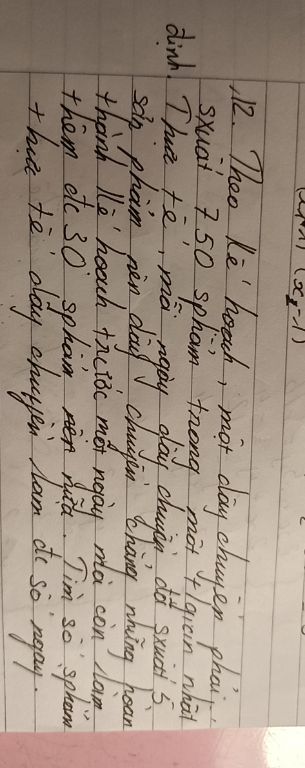 (x₂-1)
12. Theo kế hoạch, một dây chuyền phải
sxuất 750 sphẩm trong một tgian nhất
định. Thực tế, mỗi ngày dây chuyền đã sxuất 5
sản phẩm nên dây chuyền chẳng những hoàn
thành kế hoạch trước một ngày mà còn làm
thêm đc 30 sphẩm nữa. Tìm số sphẩm
thực tế dây chuyền làm đc số ngày.